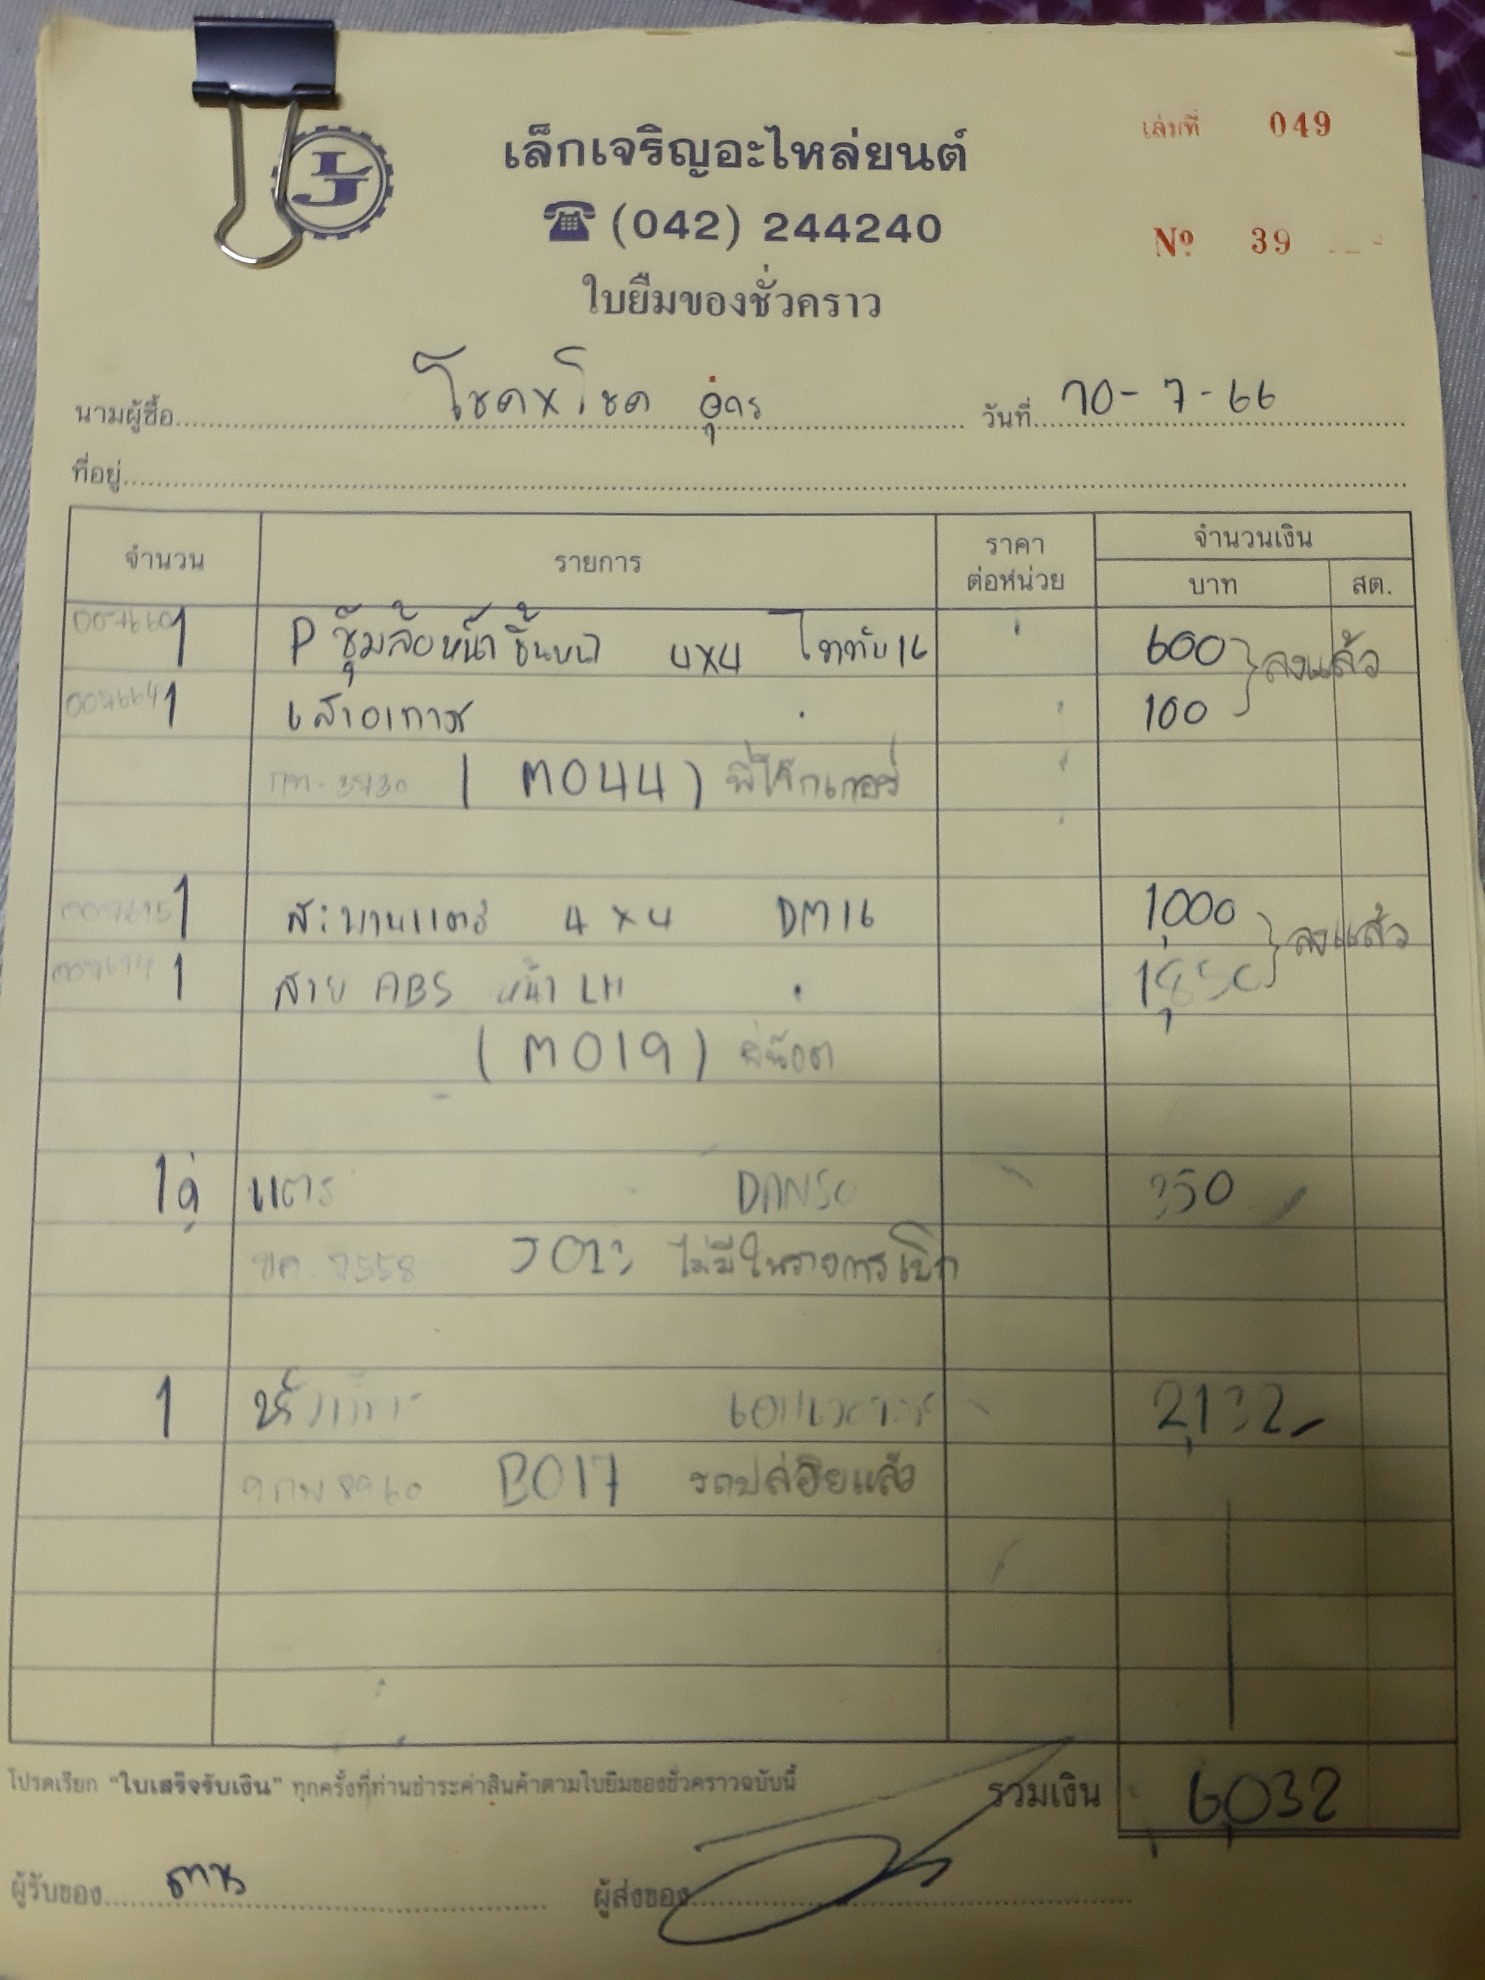 LJ
เล็กเจริญอะไหล่ยนต์
เล่มที่ 049
(042) 244240
Nº 39
ใบยืมของชั่วคราว
นามผู้ซื้อ โชคxโชค อุดร วันที่ 10-7-66
ที่อยู่
จำนวน รายการ ราคาต่อหน่วย จำนวนเงิน
บาท สต.
1 P ซุ้มล้อหน้า ชิ้นหน้า 4x4 ไททัน 16 600 ลงแล้ว
1 เสาอากาศ 100
(M044) พี่โจ๊กเกอร์
1 สะพานแตร 4x4 DM16 1,000 ลงแล้ว
1 สาย ABS หน้า LH 1,850
(M019) พี่น๊อต
1คู่ แตร 350
ขค. 7558 ไม่มีในรายการเบิก
1 2,132
8960 B017 รถปล่อยแล้ว
โปรดเรียก "ใบเสร็จรับเงิน" ทุกครั้งที่ท่านชำระค่าสินค้าตามใบยืมของชั่วคราวฉบับนี้ รวมเงิน 6,032
ผู้รับของ ผู้ส่งของ